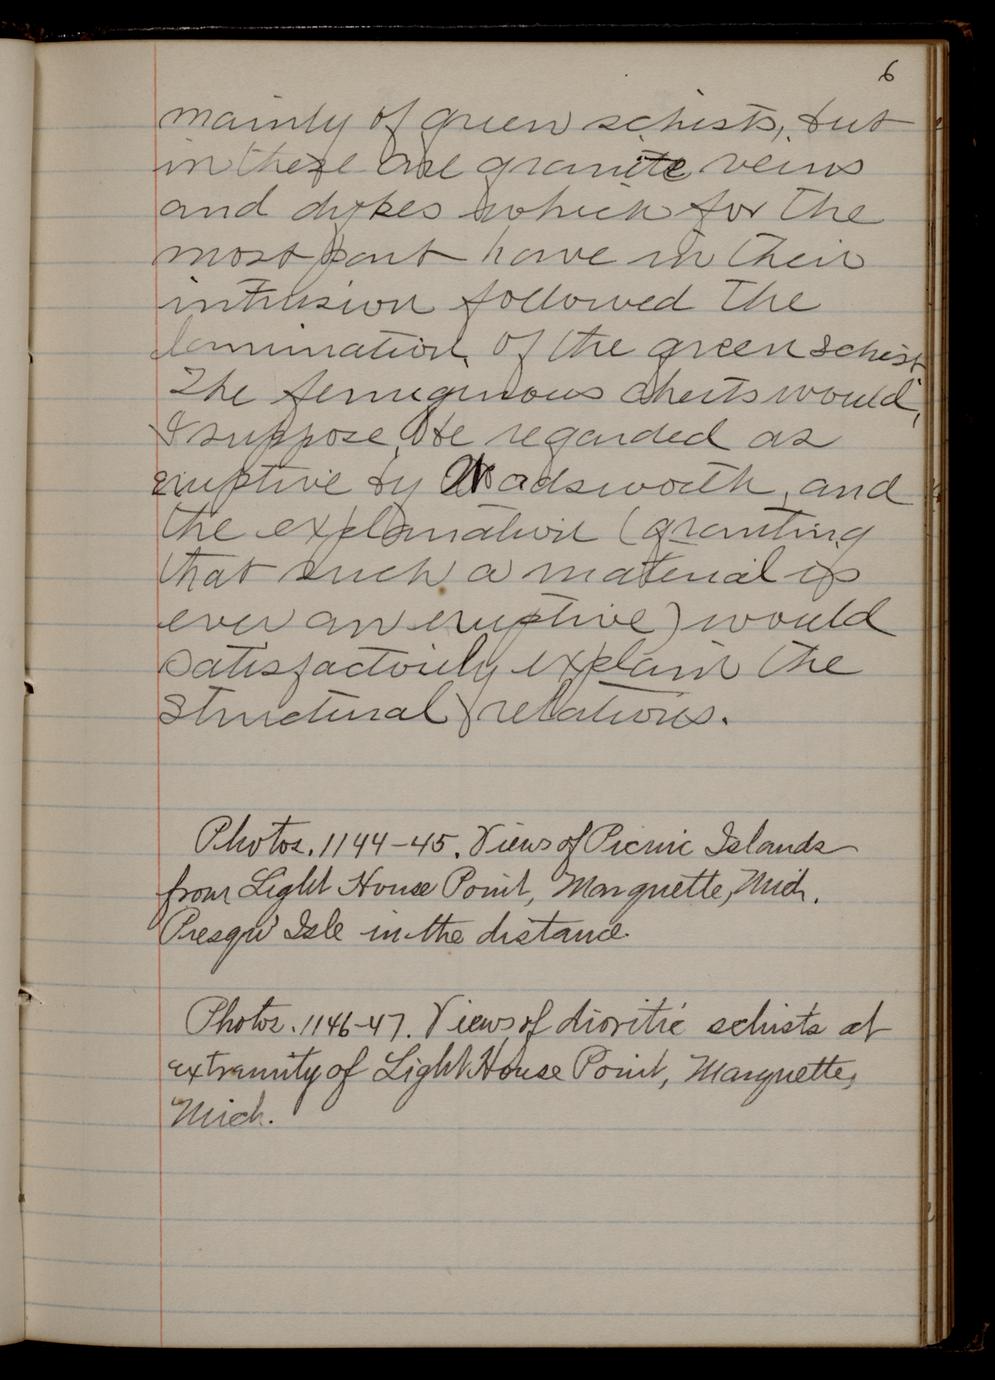 6
mainly of green schists, but
in these are granite veins
and dykes which for the
most part have in their
intrusion followed the
lamination of the green schist
The ferruginous cherts would,
I suppose, be regarded as
eruptive by Wadsworth, and
the explanation (granting
that such a material is
ever an eruptive) would
satisfactorily explain the
structural relations.
Photos. 1144-45. Views of Picnic Islands
from Light House Point, Marquette, Mich.
Presqu' Isle in the distance.
Photos. 1146-47. Views of dioritic schists at
extremity of Light House Point, Marquette,
Mich.